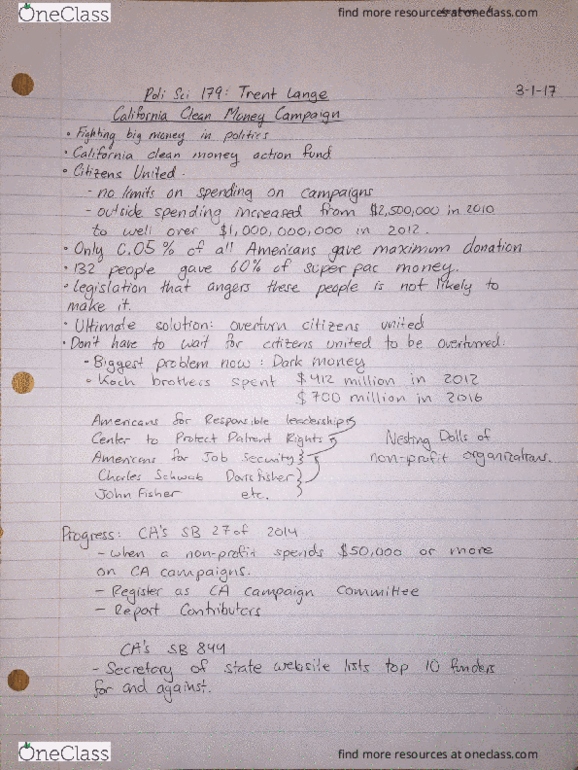 OneClass
find more resources at oneclass.com
Poli Sci 179: Trent Lange
3-1-17
California Clean Money Campaign
• Fighting big money in politics
• California clean money action fund
• Citizens United.
- no limits on spending on campaigns
- outside spending increased from $2,500,000 in 2010
to well over $1,000,000,000 in 2012.
• Only 0.05% of all Americans gave maximum donation
• 132 people gave 60% of super pac money.
• legislation that angers these people is not likely to
make it.
• Ultimate solution: overturn citizens united
• Don't have to wait for citizens united to be overturned.
- Biggest problem now: Dark money
• Koch brothers spent $412 million in 2012
$700 million in 2016
Americans for Responsible leadership
Center to Protect Patient Rights
Nesting Dolls of
Americans for Job Security
non-profit organizations.
Charles Schwab Doris fisher
John Fisher etc.
Progress: CA's SB 27 of 2014
- when a non-profit spends $50,000 or more
on CA campaigns.
- Register as CA campaign committee
- Report Contributors
CA's SB 844
- Secretary of state website lists top 10 funders
for and against.
OneClass
find more resources at oneclass.com